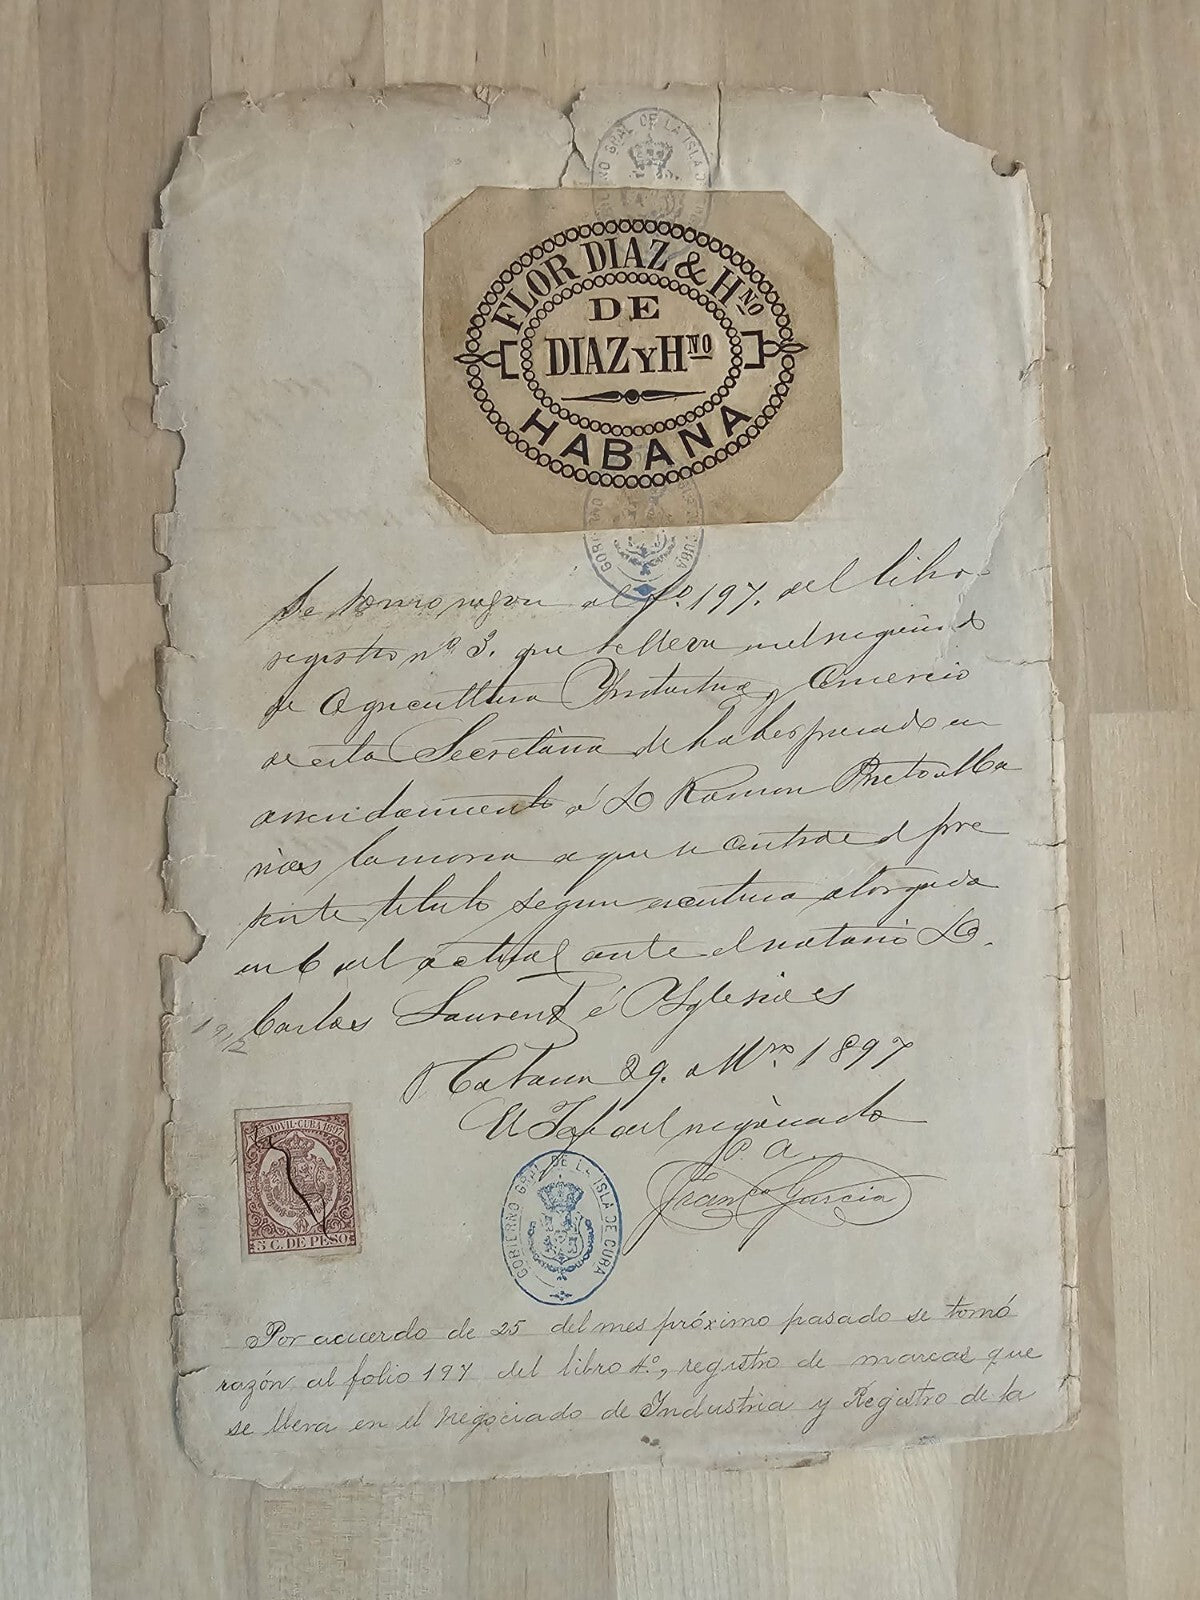 GOBIERNO GRAL DE LA ISLA DE CUBA
FLOR DIAZ & HNO
DE
DIAZ Y HNO
HABANA
Se tomo razon al fo. 197. del libro
registro nº 3. que se lleva en el negociado
de Agricultura Industria y Comercio
de esta Secretaria de haberse dado en
arrendamiento á D Ramon Prieto
la marca a que se contrae el pre
sente titulo segun escritura otorgada
en 6 del actual ante el notario D.
Carlos Laurent é Yglesias
Habana 29. de Mzo. 1897
El Jefe del negociado
P. A.
Franco Garcia
MOVIL-CUBA 1897
5 C. DE PESO
GOBIERNO GRAL DE LA ISLA DE CUBA
Por acuerdo de 25 del mes próximo pasado se tomó
razón al folio 197 del libro 4º, registro de marcas que
se lleva en el Negociado de Industria y Registro de la